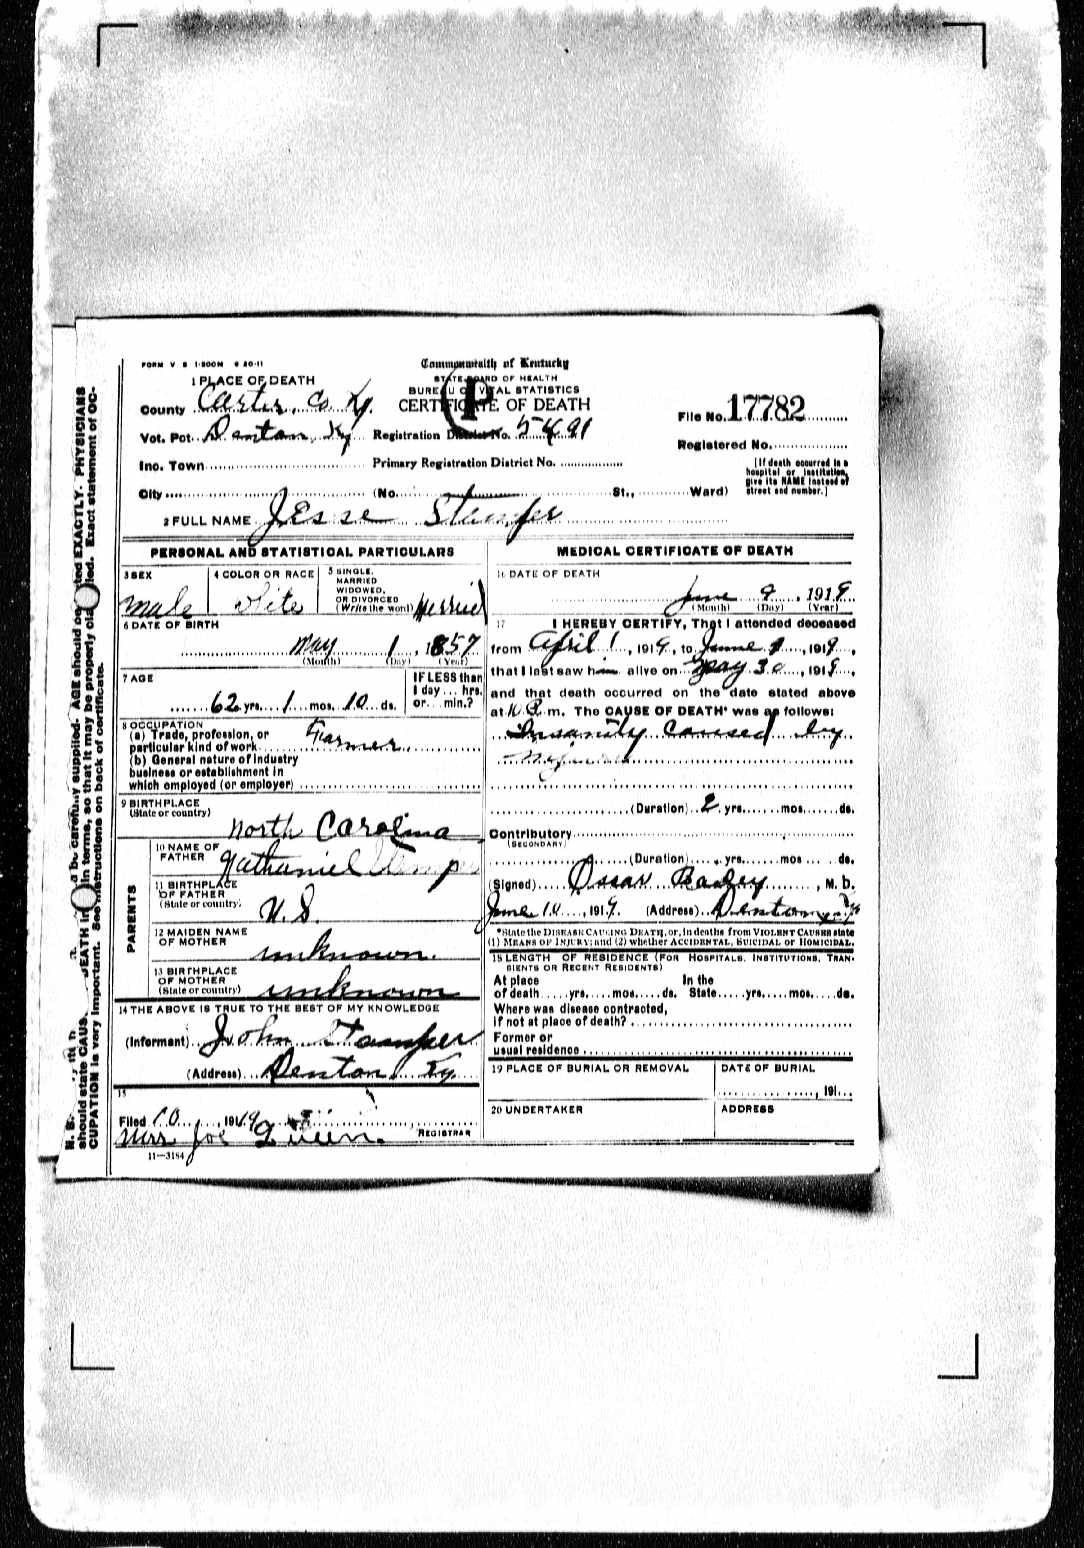 FORM V S 1-500M 6 20-11
Commonwealth of Kentucky
STATE BOARD OF HEALTH
BUREAU OF VITAL STATISTICS
CERTIFICATE OF DEATH
P
1 PLACE OF DEATH
County Carter Co Ky.
Vot. Pct. Denton, Ky Registration District No. 5491
Inc. Town Primary Registration District No.
File No. 17782
Registered No.
[If death occurred in a
hospital or institution,
give its NAME instead of
street and number.]
City (No. St., Ward)
2 FULL NAME Jesse Stamper
PERSONAL AND STATISTICAL PARTICULARS
3 SEX
male
4 COLOR OR RACE
white
5 SINGLE,
MARRIED
WIDOWED,
OR DIVORCED
(Write the word) Married
6 DATE OF BIRTH
May 1, 1857
(Month) (Day) (Year)
7 AGE
62 yrs. 1 mos. 10 ds.
IF LESS than
1 day ... hrs.
or ... min.?
8 OCCUPATION
(a) Trade, profession, or
particular kind of work Farmer
(b) General nature of industry
business or establishment in
which employed (or employer)
9 BIRTHPLACE
(State or country)
North Carolina
PARENTS
10 NAME OF
FATHER Nathaniel
11 BIRTHPLACE
OF FATHER
(State or country) U.S.
12 MAIDEN NAME
OF MOTHER unknown.
13 BIRTHPLACE
OF MOTHER
(State or country) unknown
14 THE ABOVE IS TRUE TO THE BEST OF MY KNOWLEDGE
(Informant) John Stamper
(Address) Denton Ky
15
Filed 10, 1919
Mrs Joe REGISTRAR
11—3184
MEDICAL CERTIFICATE OF DEATH
16 DATE OF DEATH
June 9, 1919
(Month) (Day) (Year)
17 I HEREBY CERTIFY, That I attended deceased
from April 1, 1919, to June 9, 1919,
that I last saw him alive on May 30, 1919,
and that death occurred on the date stated above
at m. The CAUSE OF DEATH* was as follows:
Insanity caused by
(Duration) 2 yrs. mos. ds.
Contributory
(SECONDARY)
(Duration) yrs. mos. ds.
(Signed) Oscar, M. D.
June 10, 1919. (Address) Denton Ky
*State the DISEASE CAUSING DEATH, or, in deaths from VIOLENT CAUSES state
(1) MEANS OF INJURY; and (2) whether ACCIDENTAL, SUICIDAL or HOMICIDAL.
18 LENGTH OF RESIDENCE (FOR HOSPITALS, INSTITUTIONS, TRANSIENTS OR RECENT RESIDENTS)
At place In the
of death yrs. mos. ds. State yrs. mos. ds.
Where was disease contracted,
if not at place of death?
Former or
usual residence
19 PLACE OF BURIAL OR REMOVAL
DATE OF BURIAL
, 191
20 UNDERTAKER
ADDRESS
supplied. AGE should be stated EXACTLY. PHYSICIANS
should state DEATH in terms, so that it may be properly Exact statement of OC-
CUPATION is very important. See instructions on back of certificate.